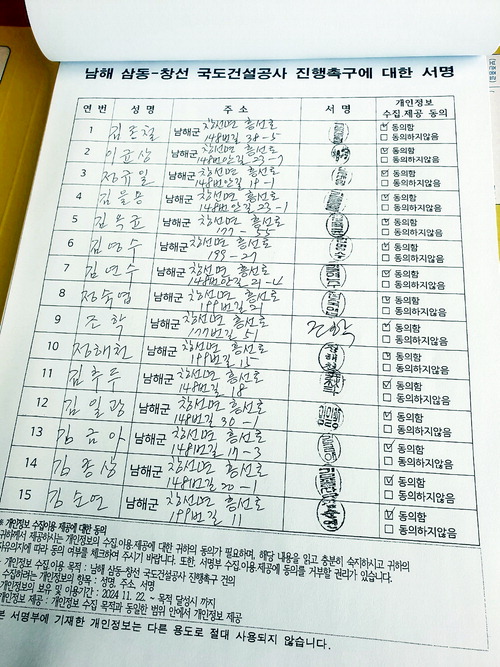 남해 삼동-창선 국도건설공사 진행촉구에 대한 서명
연 번 성 명 주 소 서 명 개인정보 수집.제공 동의
1 김조철 남해군 창선면 흥선로 148번길 38-5 ☑ 동의함
□ 동의하지않음
2 이균상 남해군 창선면 흥선로 148번안길 23-7 ☑ 동의함
□ 동의하지않음
3 정규일 남해군 창선면 흥선로 148번안길 19-1 ☑ 동의함
□ 동의하지않음
4 남해군 창선면 흥선로 148번안길 23-1 ☑ 동의함
□ 동의하지않음
5 김옥균 남해군 창선면 흥선로 177-55 ☑ 동의함
□ 동의하지않음
6 김영수 남해군 창선면 흥선로 199-27 ☑ 동의함
□ 동의하지않음
7 김연수 남해군 창선면 흥선로 148번안길 21-4 ☑ 동의함
□ 동의하지않음
8 정숙엽 남해군 창선면 흥선로 199번길 21 ☑ 동의함
□ 동의하지않음
9 조학 남해군 창선면 흥선로 177번길 51 조학 ☑ 동의함
□ 동의하지않음
10 정해천 남해군 창선면 흥선로 199번길 15 ☑ 동의함
□ 동의하지않음
11 김후두 남해군 창선면 흥선로 148번길 18 ☑ 동의함
□ 동의하지않음
12 김일광 남해군 창선면 흥선로 148번길 30-1 ☑ 동의함
□ 동의하지않음
13 김금아 남해군 창선면 흥선로 148번길 17-3 ☑ 동의함
□ 동의하지않음
14 김종상 남해군 창선면 흥선로 148번길 20-1 ☑ 동의함
□ 동의하지않음
15 김소연 남해군 창선면 흥선로 199번길 11 ☑ 동의함
□ 동의하지않음
* 개인정보 수집이용.제공에 대한 동의
귀하께서 제공하시는 개인정보의 수집.이용.제공에 대한 귀하의 동의가 필요하며, 해당 내용을 읽고 충분히 숙지하시고 귀하의
자유의지에 따라 동의 여부를 체크하여 주시기 바랍니다. 또한, 서명부 수집.이용.제공에 동의를 거부할 권리가 있습니다.
개인정보 수집.이용 목적 : 남해 삼동-창선 국도건설공사 진행촉구 건의
수집하려는 개인정보의 항목 : 성명, 주소, 서명
개인정보의 보유 및 이용기간 : 2024. 11. 22. ~ 목적 달성시 까지
개인정보 제공 : 개인정보 수집 목적과 동일한 범위 안에서 개인정보 제공
본 서명부에 기재한 개인정보는 다른 용도로 절대 사용되지 않습니다.